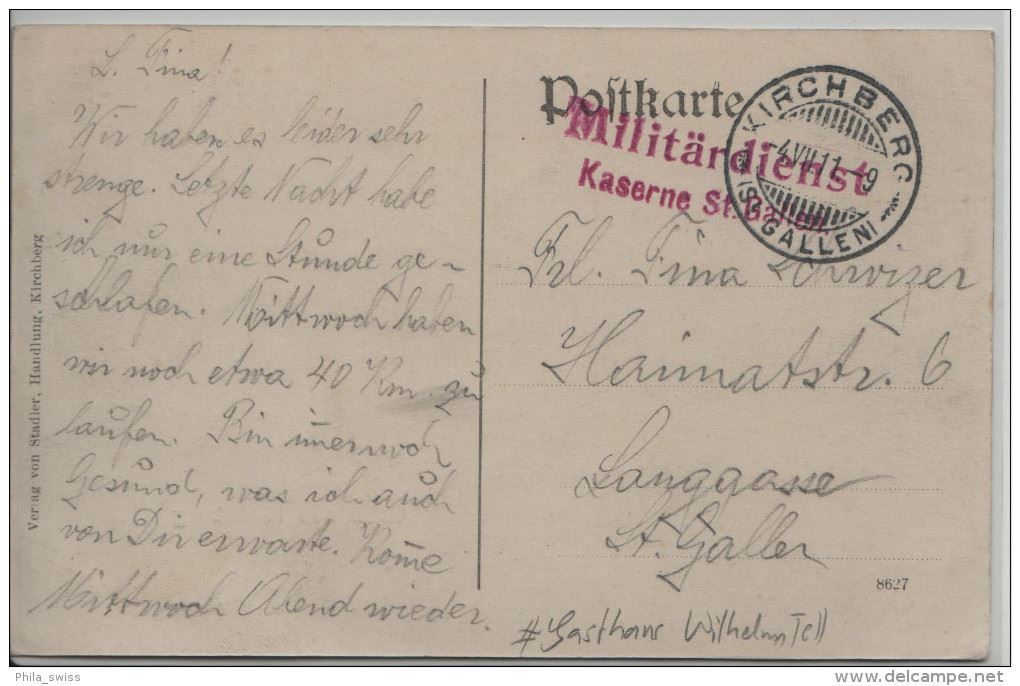 L. Tina!
Wir haben es leider sehr
strenge. Letzte Nacht habe
ich nur eine Stunde ge-
schlafen. Mittwoch haben
wir noch etwa 40 Km. zu
laufen. Bin im̄ernoch
Gesund, was ich auch
von Dir erwarte. Kom̄e
Mittwoch Abend wieder.
Verlag von Stadler, Handlung, Kirchberg
Postkarte
Militärdienst
Kaserne St. Gallen.
KIRCHBERG
4.VII.11.-9
(ST. GALLEN)
Frl. Tina Schwizer
Haimatstr. 6
Langgasse
St. Gallen
8627
#Gasthaus Wilhelm Tell
Phila_swiss
delcampe.net